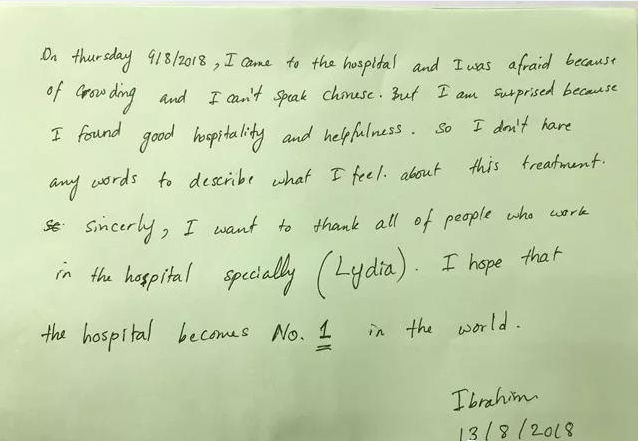 On thursday 9/8/2018, I came to the hospital and I was afraid because
of Crowding and I can't speak chinese. But I am surprised because
I found good hospitality and helpfulness. So I don't have
any words to describe what I feel. about this treatment.
Sincerly, I want to thank all of people who work
in the hospital specially (Lydia). I hope that
the hospital becomes No. 1 in the world.
Ibrahim
13/8/2018